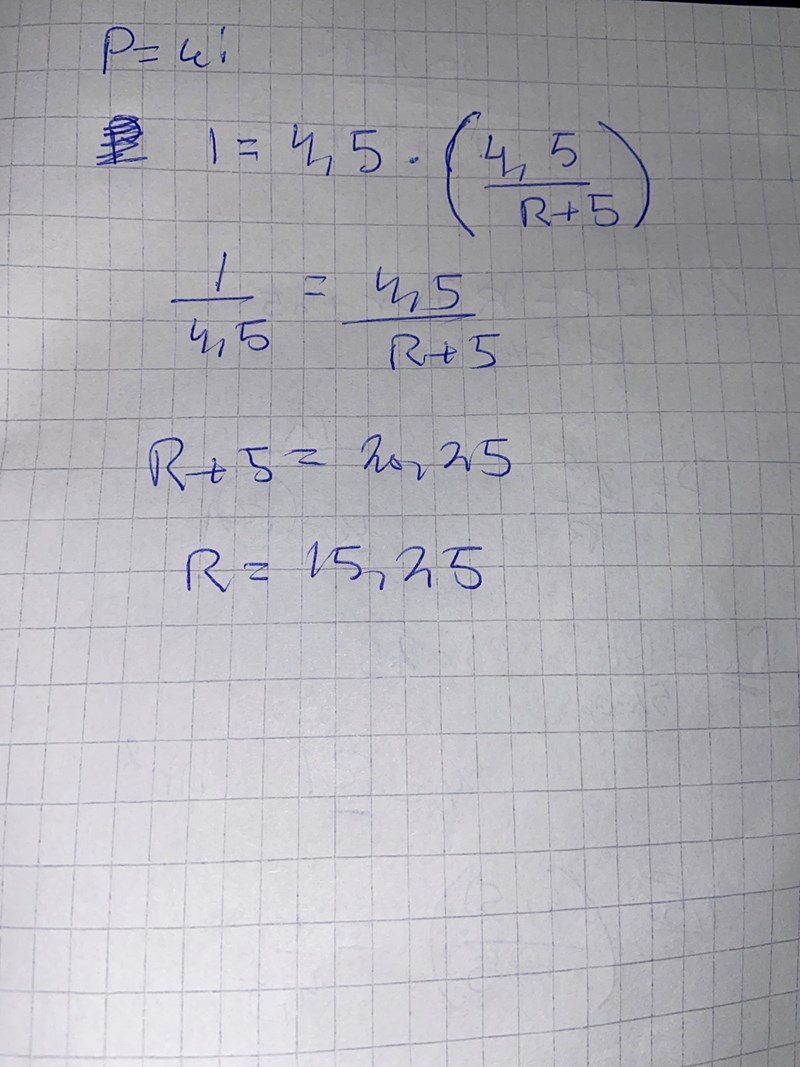 P = ui
1 = 4,5 · (4,5 / R+5)
1 / 4,5 = 4,5 / R+5
R+5 = 20,25
R = 15,25